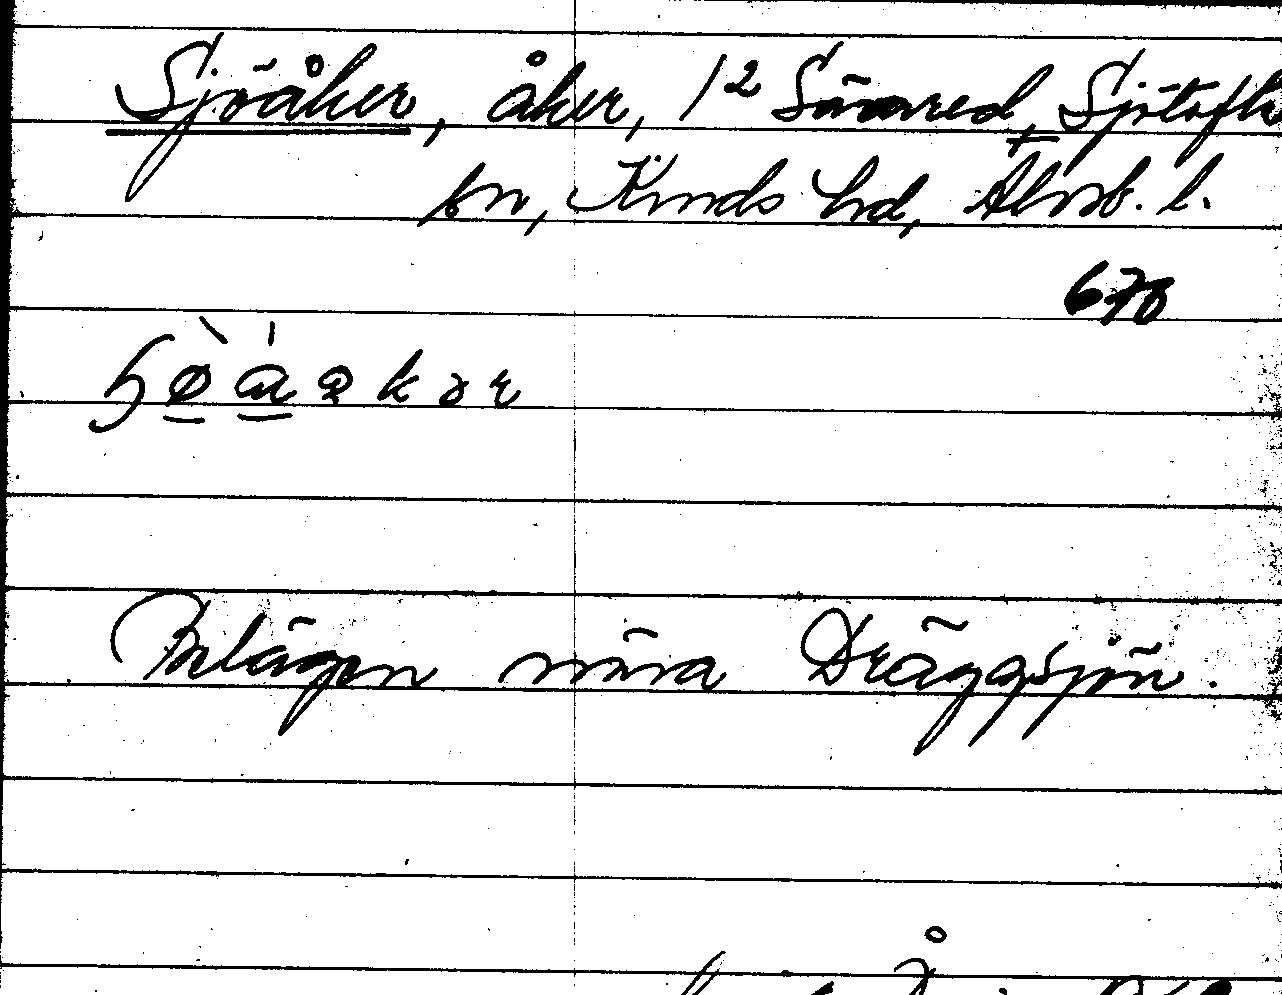 Sjöåker, åker, 1² Sänared, Sjötofta
sn, Kinds hd, Älvsb. l.
678
Belägen nära Dräggsjön.